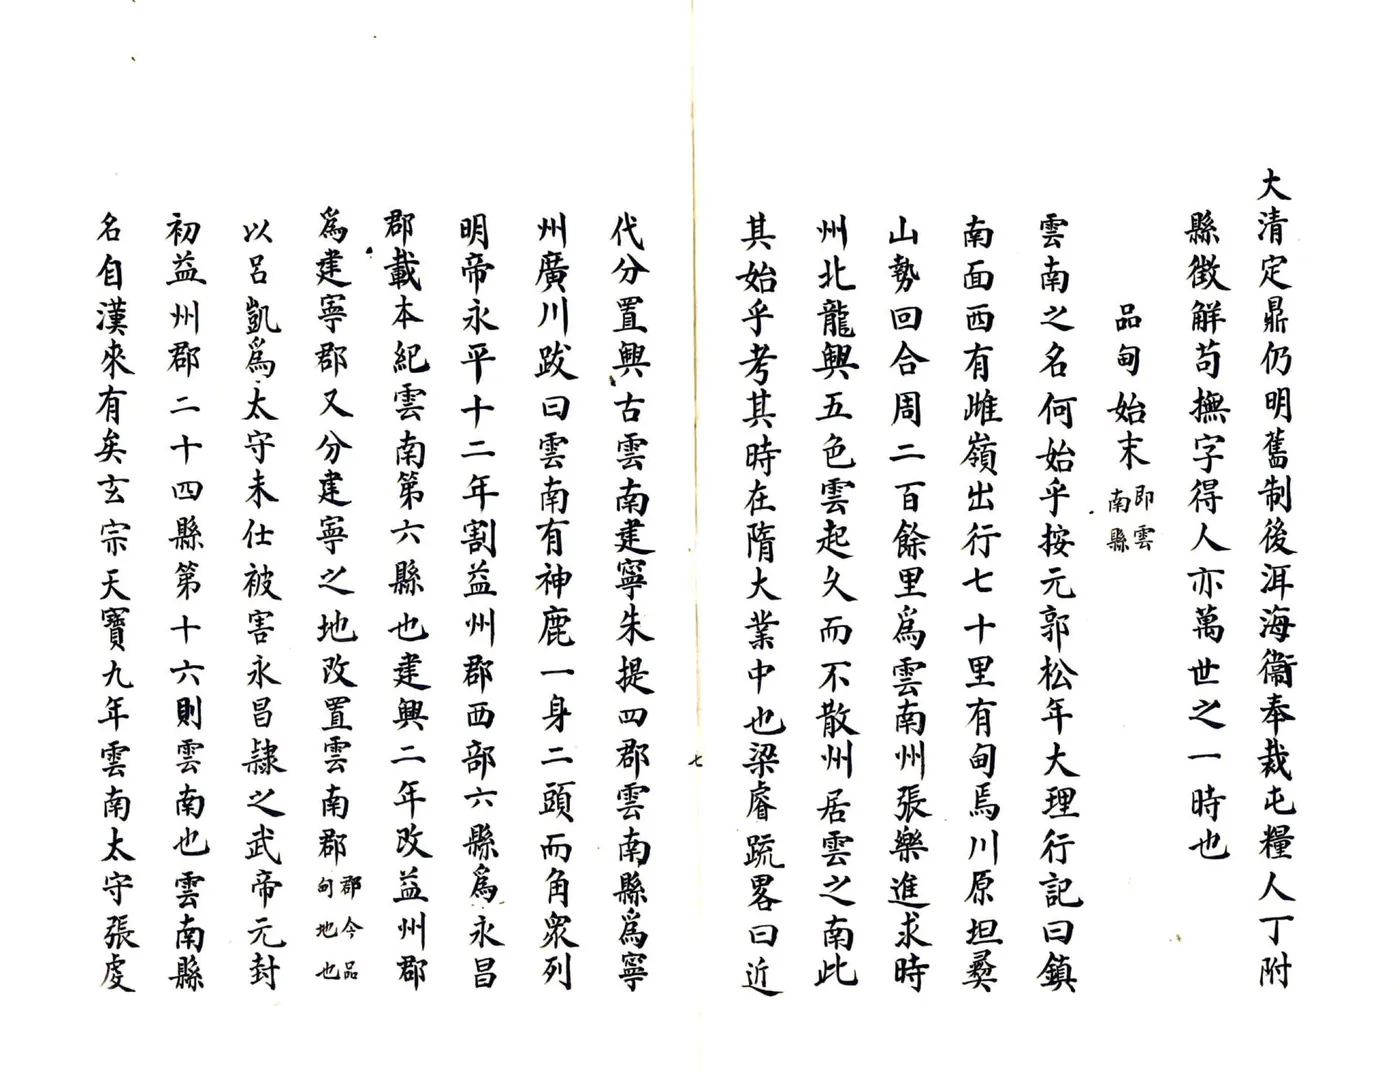 大清定鼎仍明舊制後洱海衞奉裁屯糧人丁附
縣徵解苟撫字得人亦萬世之一時也
品甸始末即雲南縣
雲南之名何始乎按元郭松年大理行記曰鎮
南面西有雌嶺出行七十里有甸焉川原坦彛
山勢回合周二百餘里爲雲南州張樂進求時
州北龍興五色雲起久而不散州居雲之南此
其始乎考其時在隋大業中也梁睿疏畧曰近
代分置興古雲南建寧朱提四郡雲南縣爲寧
州廣川跋曰雲南有神鹿一身二頭而角衆列
明帝永平十二年割益州郡西部六縣爲永昌
郡載本紀雲南第六縣也建興二年改益州郡
爲建寧郡又分建寧之地改置雲南郡郡今品甸地也
以呂凱爲太守未仕被害永昌隸之武帝元封
初益州郡二十四縣第十六則雲南也雲南縣
名自漢來有矣玄宗天寶九年雲南太守張虔
七